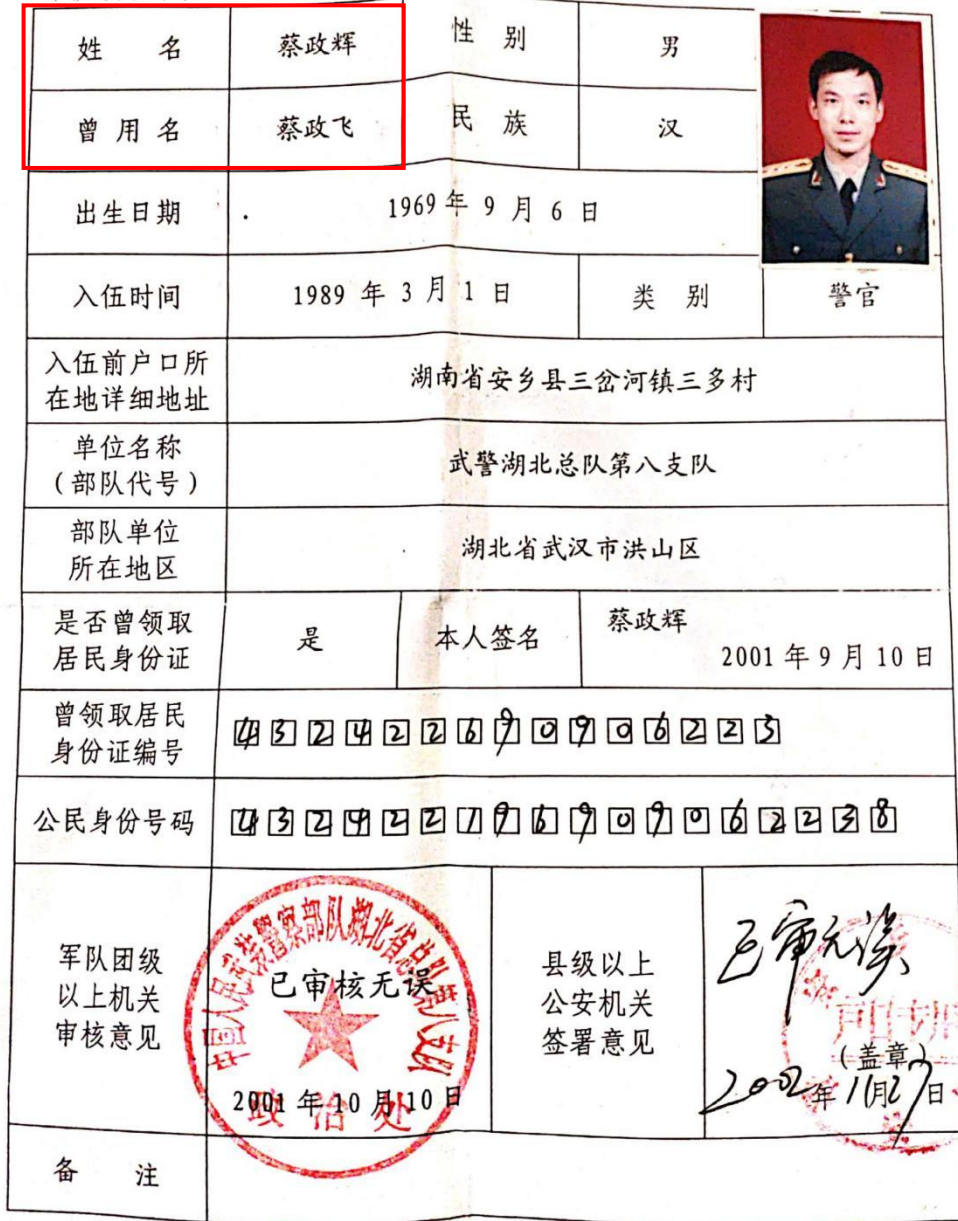 姓 名 蔡政辉 性 别 男
曾 用 名 蔡政飞 民 族 汉
出生日期 1969 年 9 月 6 日
入伍时间 1989 年 3 月 1 日 类 别 警官
入伍前户口所
在地详细地址
湖南省安乡县三岔河镇三多村
单位名称
(部队代号)
武警湖北总队第八支队
部队单位
所在地区
湖北省武汉市洪山区
是否曾领取
居民身份证
是
本人签名
蔡政辉
2001 年 9 月 10 日
曾领取居民
身份证编号
432422690906223
公民身份号码 432422196909062238
军队团级
以上机关
审核意见
中国人民武装警察部队湖北省总队第八支队
已审核无误
2001 年 10 月 10 日
政治处
县级以上
公安机关
签署意见
已审无误
(盖章)
2002年11月27日
备 注